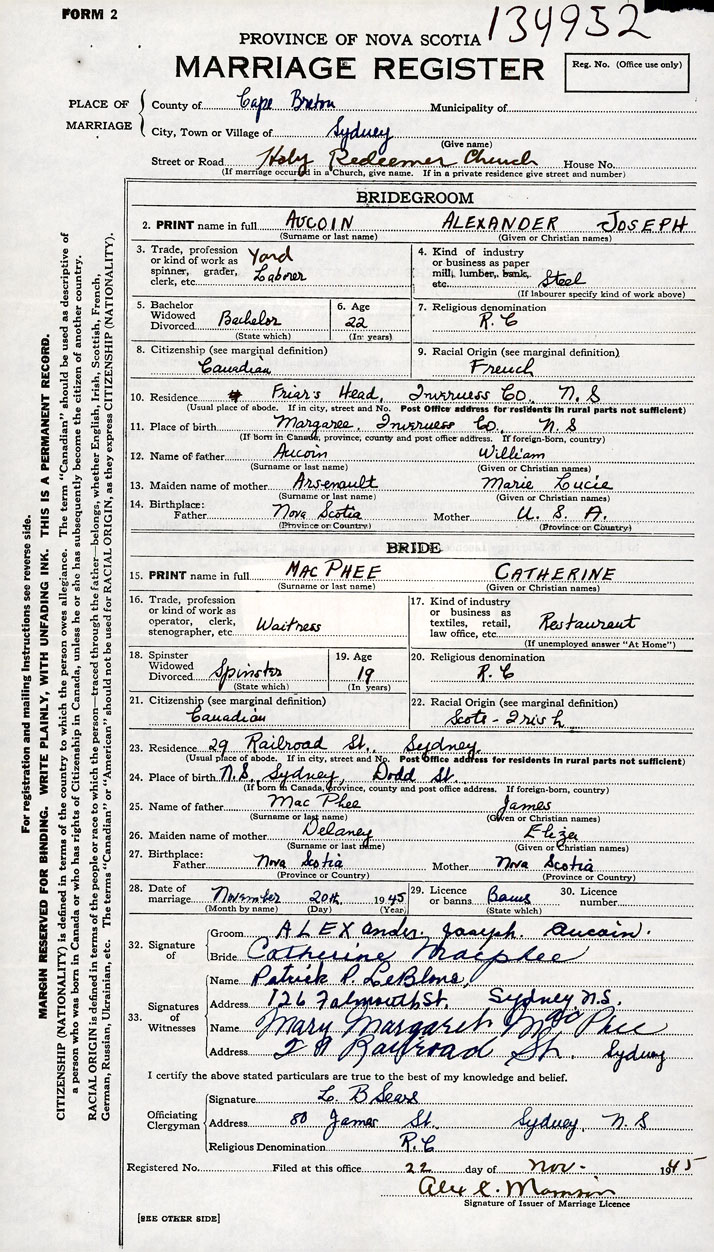 FORM 2
134952
PROVINCE OF NOVA SCOTIA
MARRIAGE REGISTER
Reg. No. (Office use only)
PLACE OF MARRIAGE
County of Cape Breton Municipality of
City, Town or Village of Sydney
(Give name)
Street or Road Holy Redeemer Church House No.
(If marriage occured in a Church, give name. If in a private residence give street and number)
BRIDEGROOM
2. PRINT name in full AUCOIN ALEXANDER JOSEPH
(Surname or last name) (Given or Christian names)
3. Trade, profession or kind of work as spinner, grader, clerk, etc. Yard Laborer
4. Kind of industry or business as paper mill, lumber, bank, etc. Steel
(If labourer specify kind of work above)
5. Bachelor Widowed Divorced Bachelor
(State which)
6. Age 22
(In years)
7. Religious denomination R.C
8. Citizenship (see marginal definition) Canadian
9. Racial Origin (see marginal definition) French
10. Residence Friar's Head, Inverness Co. N.S
(Usual place of abode. If in city, street and No. Post Office address for residents in rural parts not sufficient)
11. Place of birth Margaree, Inverness Co., N.S
(If born in Canada, province, county and post office address. If foreign-born, country)
12. Name of father Aucoin William
(Surname or last name) (Given or Christian names)
13. Maiden name of mother Arsenault Marie Lucie
(Surname or last name) (Given or Christian names)
14. Birthplace: Father Nova Scotia Mother U.S.A.
(Province or Country) (Province or Country)
BRIDE
15. PRINT name in full MAC PHEE CATHERINE
(Surname or last name) (Given or Christian names)
16. Trade, profession or kind of work as operator, clerk, stenographer, etc. Waitress
17. Kind of industry or business as textiles, retail, law office, etc. Restaurant
(If unemployed answer "At Home")
18. Spinster Widowed Divorced Spinster
(State which)
19. Age 19
(In years)
20. Religious denomination R.C
21. Citizenship (see marginal definition) Canadian
22. Racial Origin (see marginal definition) Scots-Irish
23. Residence 29 Railroad St., Sydney
(Usual place of abode. If in city, street and No. Post Office address for residents in rural parts not sufficient)
24. Place of birth N.S, Sydney, Dodd St.
(If born in Canada, province, county and post office address. If foreign-born, country)
25. Name of father Mac Phee James
(Surname or last name) (Given or Christian names)
26. Maiden name of mother Delaney Eliza
(Surname or last name) (Given or Christian names)
27. Birthplace: Father Nova Scotia Mother Nova Scotia
(Province or Country) (Province or Country)
28. Date of marriage November 20th 1945
(Month by name) (Day) (Year)
29. Licence or banns Banns
(State which)
30. Licence number
32. Signature of
Groom ALEXander Joseph Aucoin.
Bride Catherine Macphee
33. Signatures of Witnesses
Name Patrick P. LeBlanc,
Address 126 Falmouth St. Sydney N.S.
Name Mary Margaret MacPhee
Address Railroad St. Sydney
I certify the above stated particulars are true to the best of my knowledge and belief.
Officiating Clergyman
Signature L. B Sears
Address 80 James St. Sydney, N.S
Religious Denomination R.C
Registered No. Filed at this office 22 day of Nov- 1945
Signature of Issuer of Marriage Licence
[SEE OTHER SIDE]
For registration and mailing instructions see reverse side.
MARGIN RESERVED FOR BINDING. WRITE PLAINLY, WITH UNFADING INK. THIS IS A PERMANENT RECORD.
CITIZENSHIP (NATIONALITY) is defined in terms of the country to which the person owes allegiance. The term "Canadian" should be used as descriptive of
a person who was born in Canada or who has rights of Citizenship in Canada, unless he or she has subsequently become the citizen of another country.
RACIAL ORIGIN is defined in terms of the people or race to which the person—traced through the father—belongs, whether English, Irish, Scottish, French,
German, Russian, Ukrainian, etc. The terms "Canadian" or "American" should not be used for RACIAL ORIGIN, as they express CITIZENSHIP (NATIONALITY).